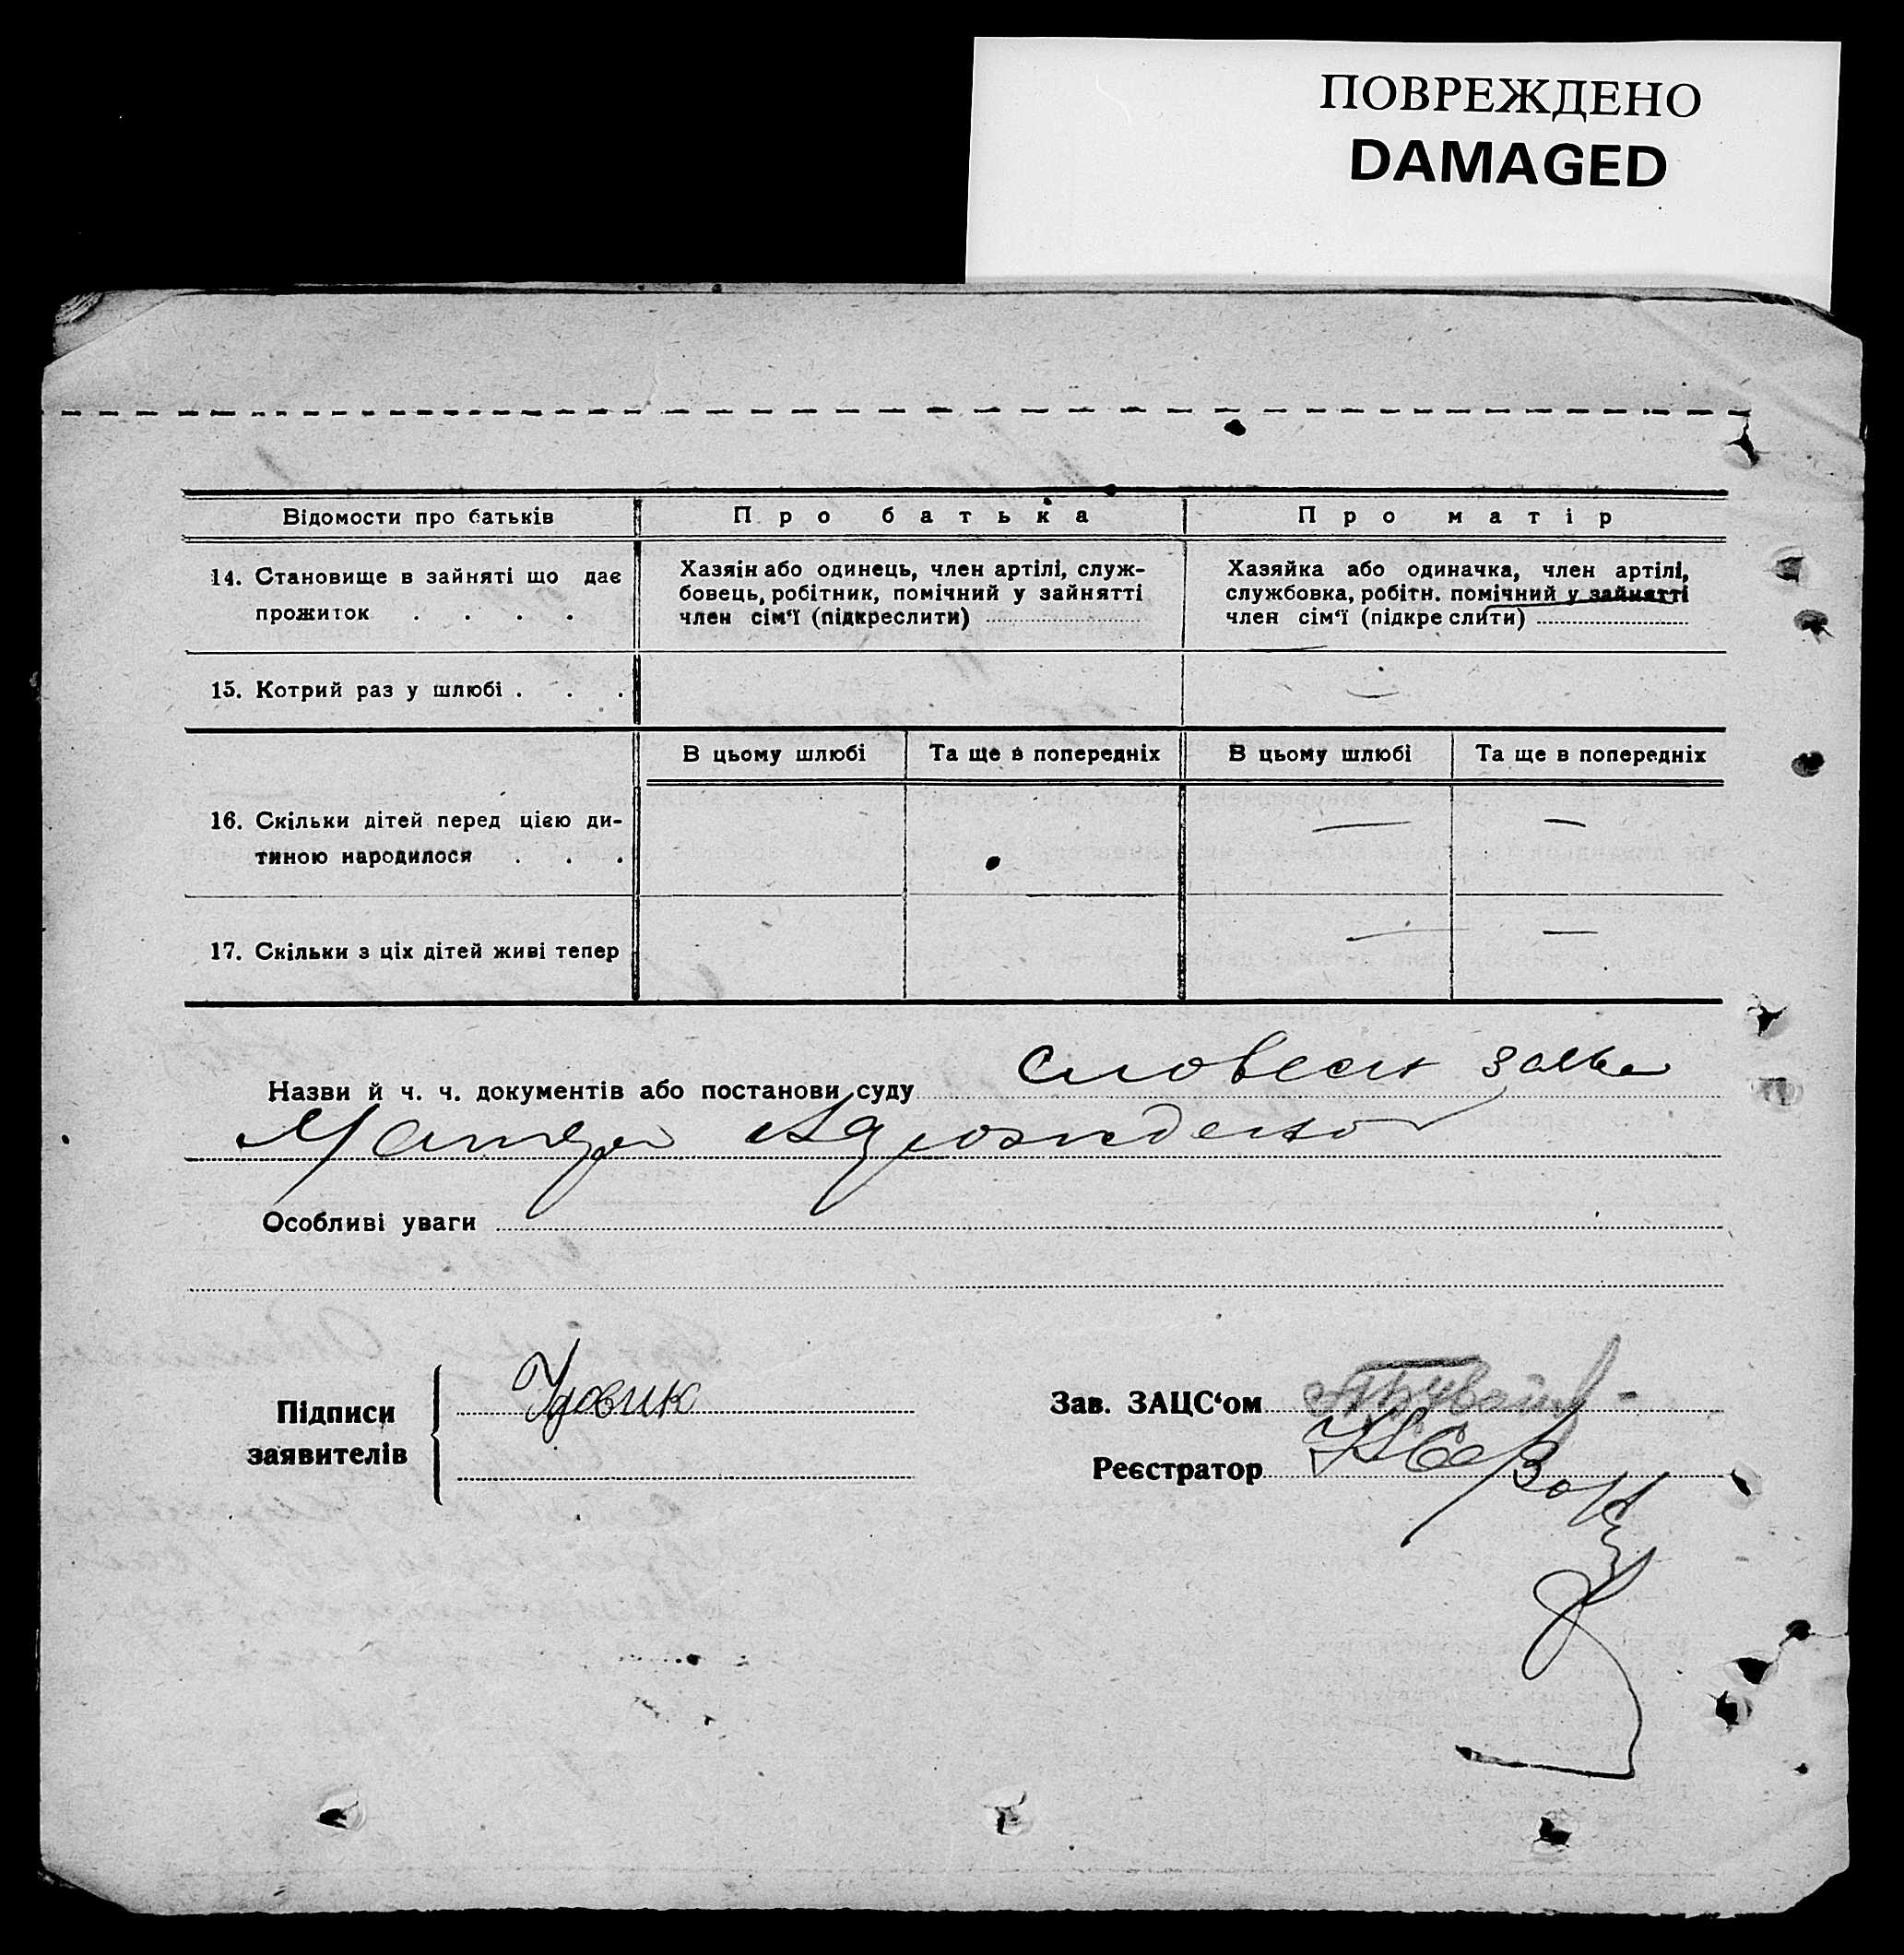 ПОВРЕЖДЕНО
DAMAGED
Відомости про батьків
Про батька
Про матір
14. Становище в зайняті що дає
прожиток . . . .
Хазяїн або одинець, член артілі, служ-
бовець, робітник, помічний у зайнятті
член сім‘ї (підкреслити)
Хазяйка або одиначка, член артілі,
службовка, робітн. помічний у зайнятті
член сім‘ї (підкреслити)
15. Котрий раз у шлюбі . . .
—
В цьому шлюбі
Та ще в попередніх
В цьому шлюбі
Та ще в попередніх
16. Скільки дітей перед цією ди-
тиною народилося . . .
— —
17. Скільки з ціх дітей живі тепер
— —
Назви й ч. ч. документів або постанови суду словесн заява
Особливі уваги
Підписи
заявителів
Удовик
Зав. ЗАЦС‘ом
Реєстратор